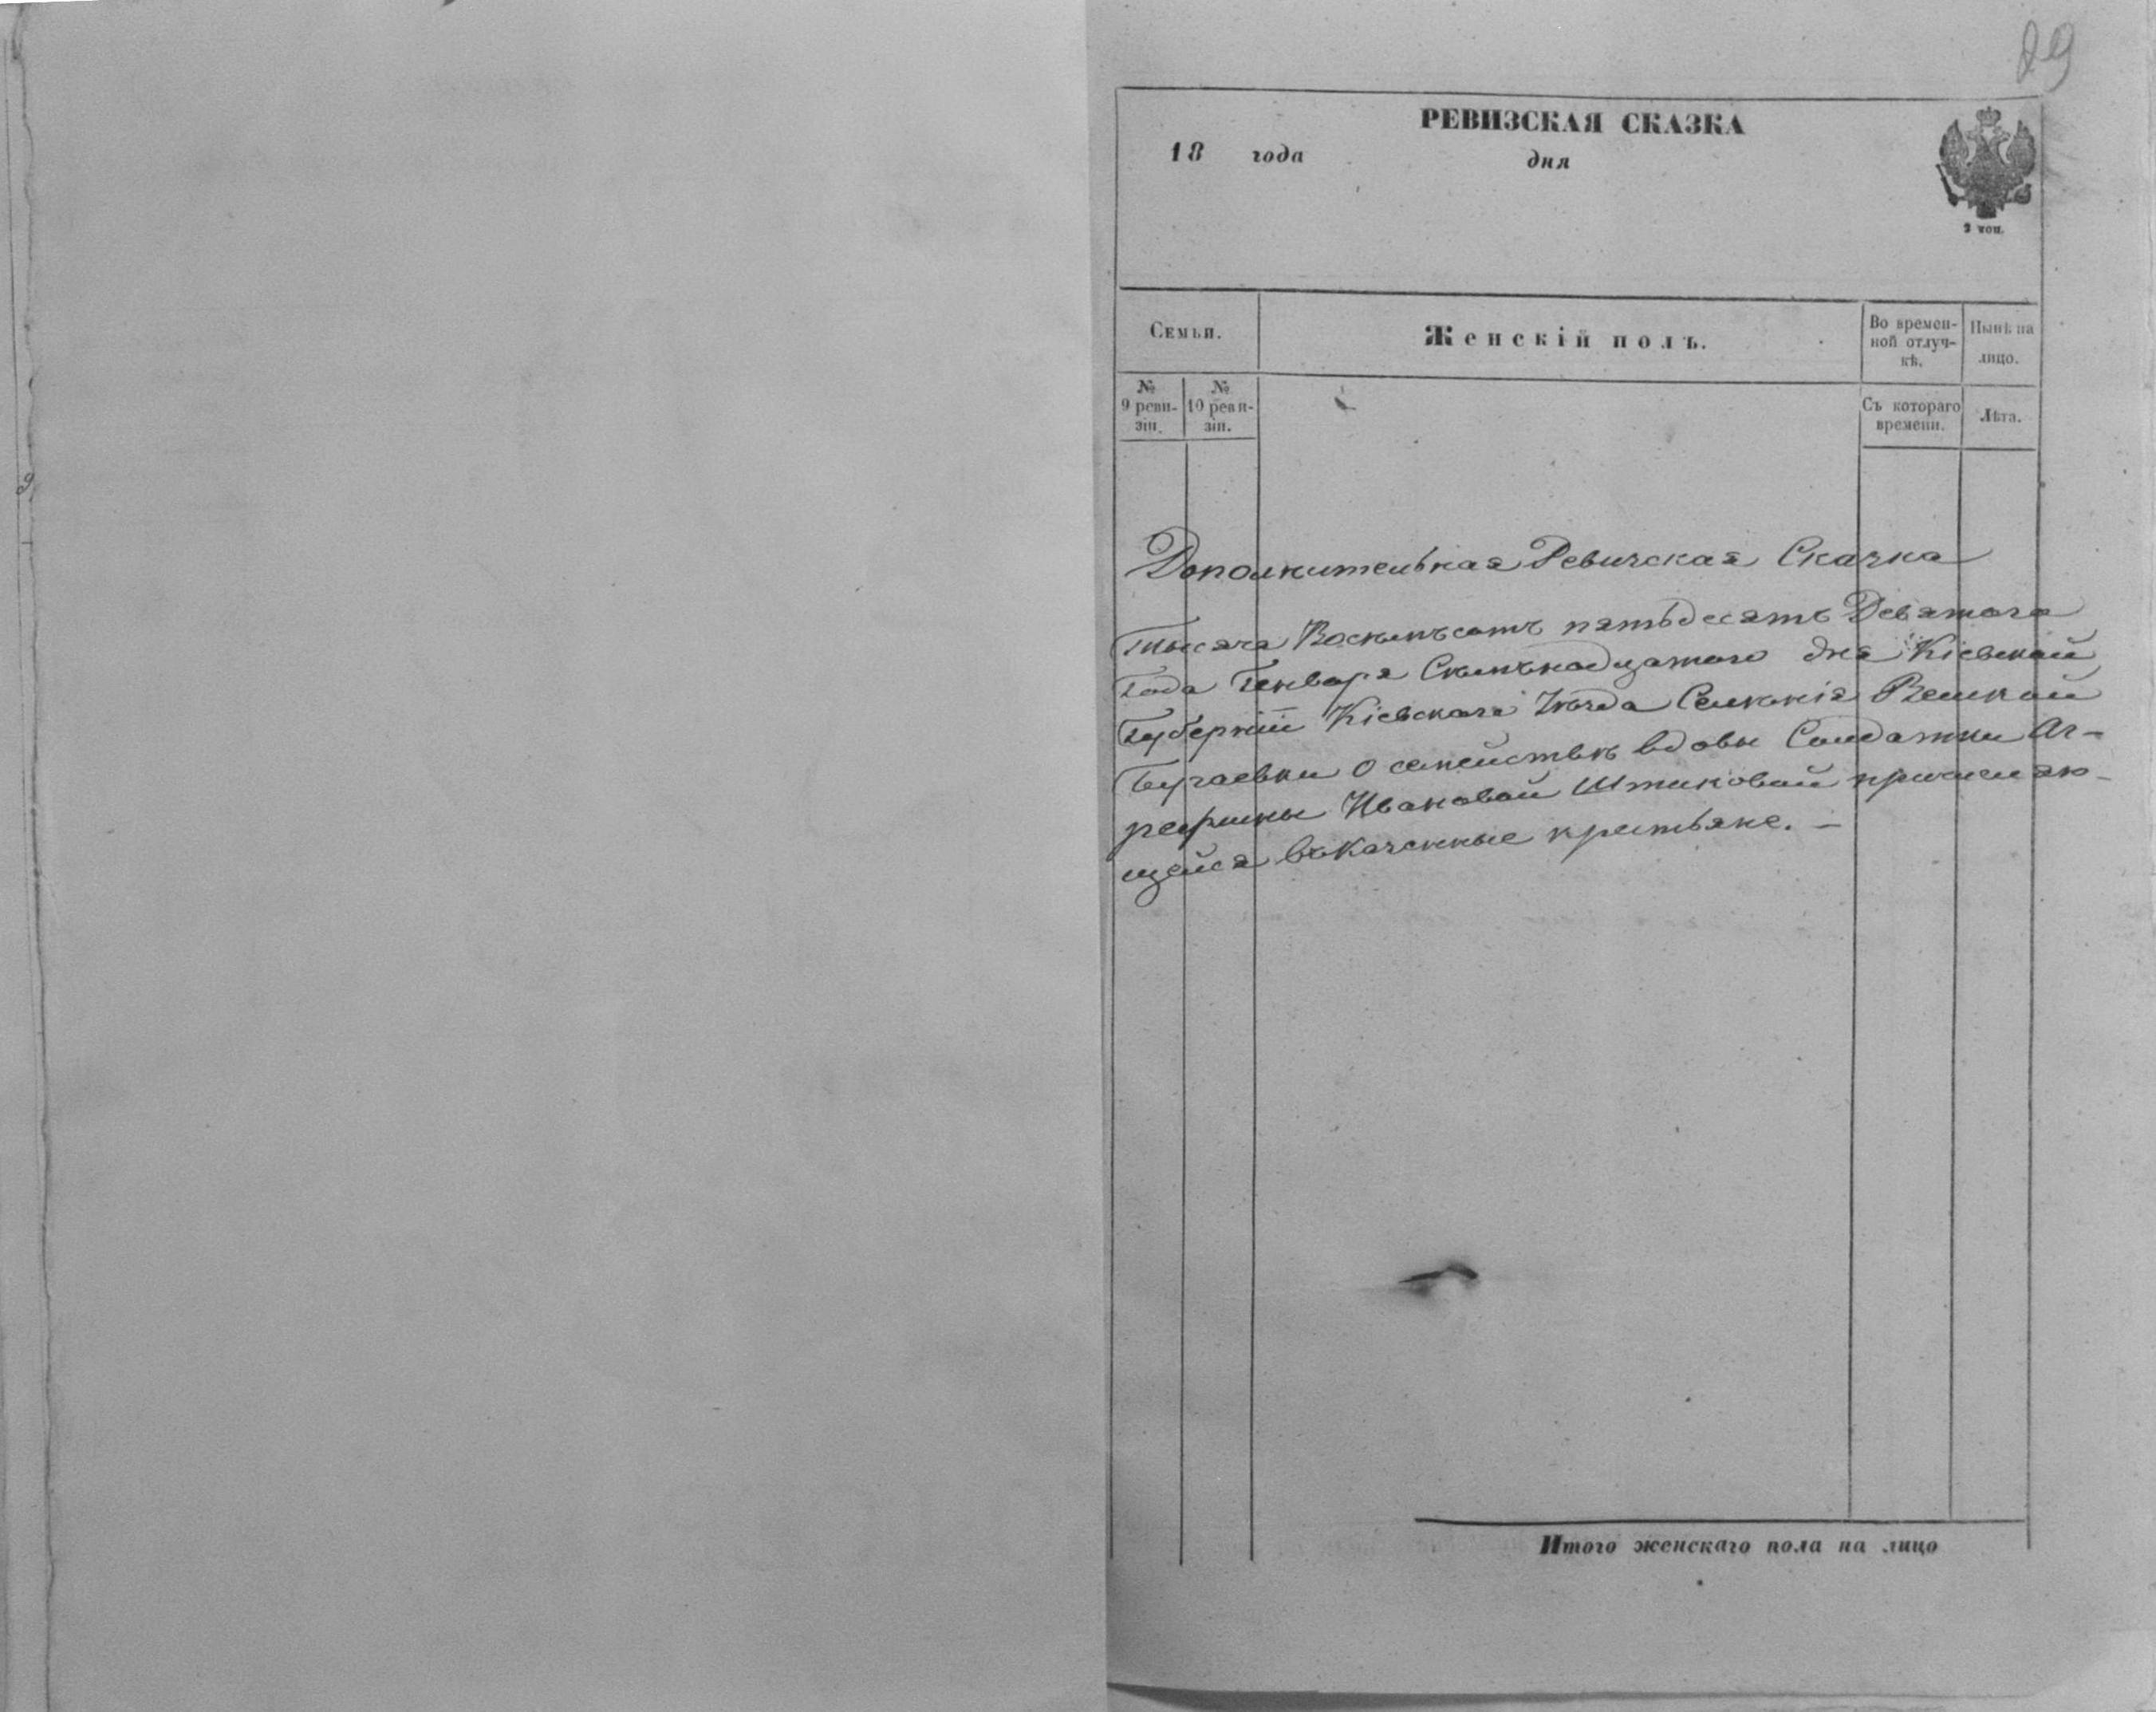 29
РЕВИЗСКАЯ СКАЗКА
18 года дня
2 коп.
Семьи.
Женскій полъ.
Во времен-
ной отлуч-
кѣ.
Нынѣ на
лицо.
№
9 реви-
зіи.
№
10 реви-
зіи.
Съ котораго
времени.
Лѣта.
Дополнительная Ревизская Сказка
Тысяча Восемьсотъ пятьдесятъ Девятого
Года Генваря Семьнадцатого дня Кіевской
Губерніи Кіевскаго Уезда Селенія Великой
Бугаевки о семействѣ вдовы Солдатки Аг-
репины Ивановой Штиковой причисляю-
щейся въ Казенные крестьяне. —
Итого женскаго пола на лицо